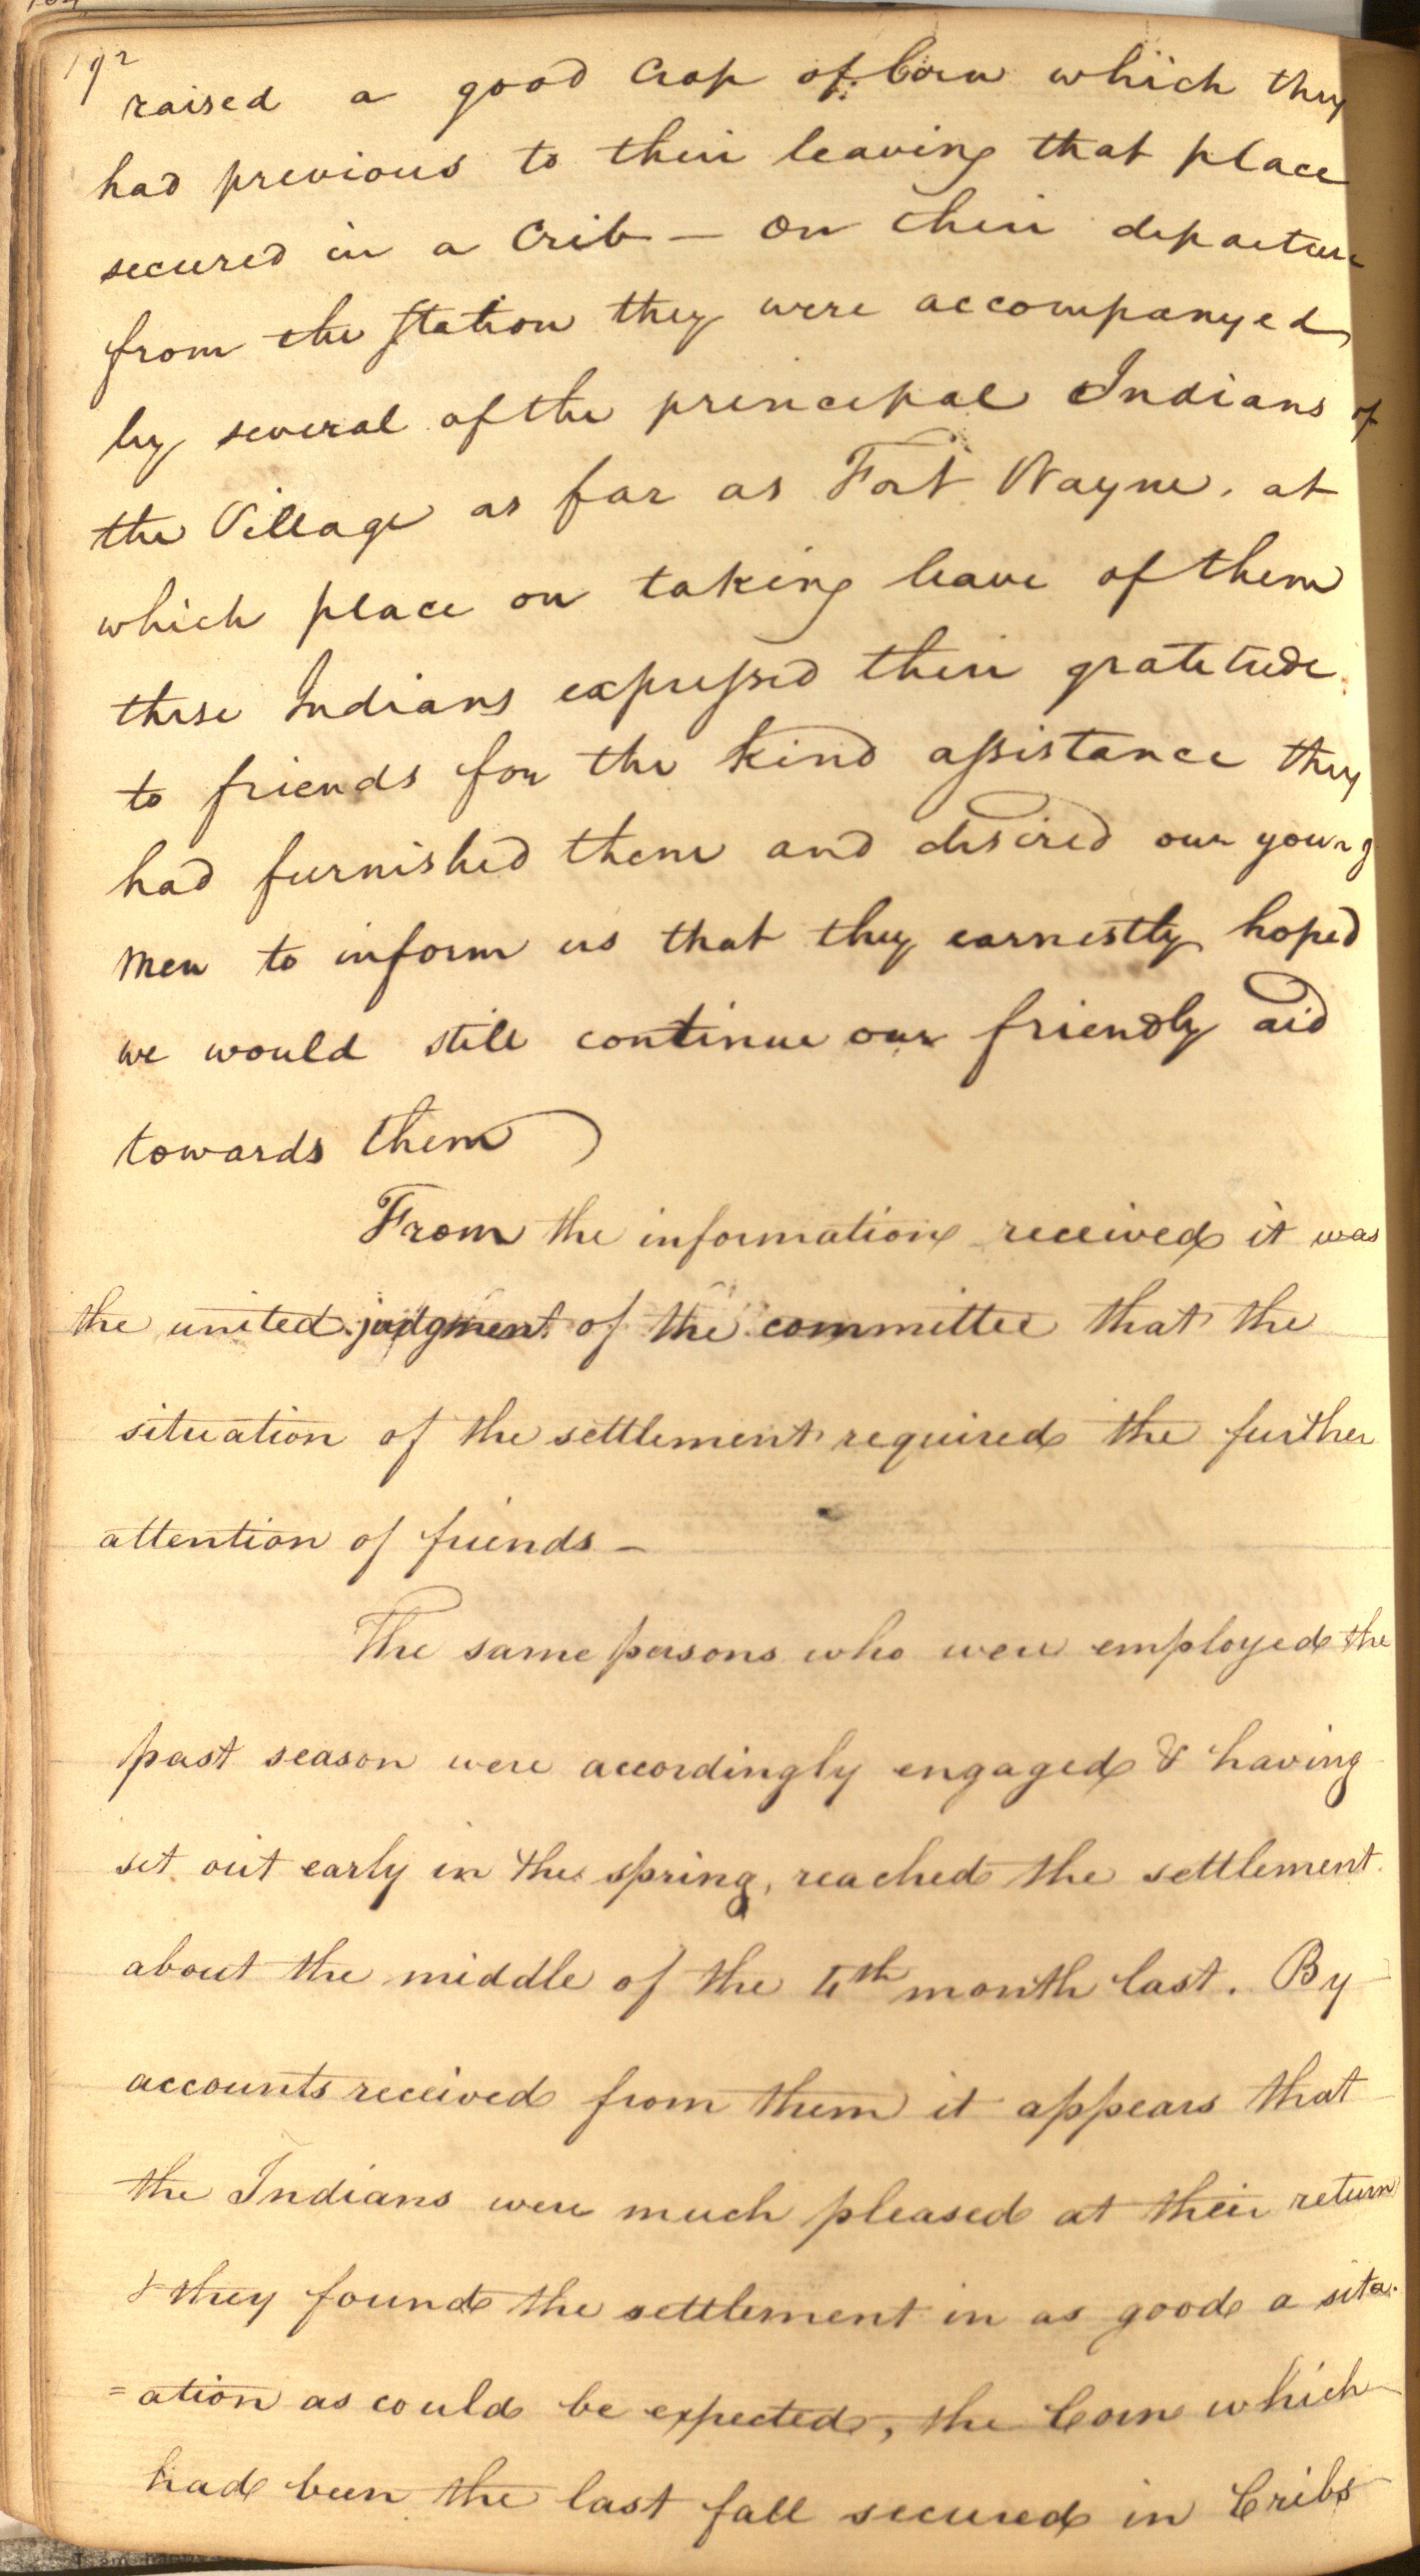 192
raised a good Crop of Corn which they
had previous to their leaving that place
secured in a Crib — on their departure
from the Station they were accompanyed
by several of the principal Indians of
the Village as far as Fort Wayne. at
which place on taking leave of them
these Indians expressed their gratitude
to friends for the kind assistance they
had furnished them and desired our young
men to inform us that they earnestly hoped
we would still continue our friendly aid
towards them
From the information received it was
the united judgment of the committee that the
situation of the settlement required the further
attention of friends —
The same persons who were employed the
past season were accordingly engaged & having
set out early in the spring, reached the settlement
about the middle of the 4th month last. By
accounts received from them it appears that
the Indians were much pleased at their return
& they found the settlement in as good a situ-
=ation as could be expected, the Corn which
had been the last fall secured in Cribs